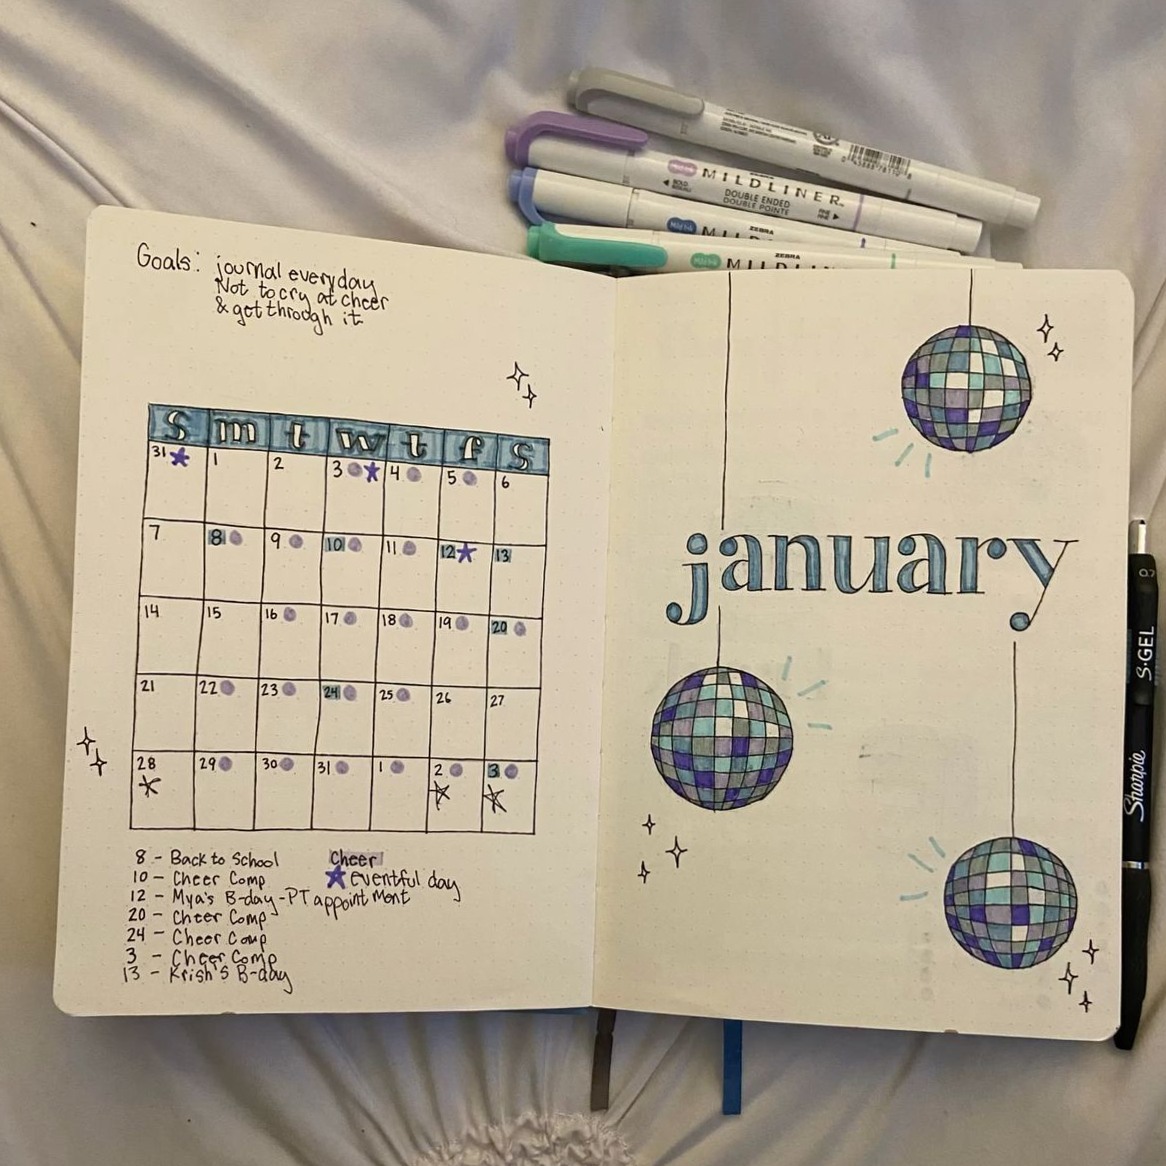 Goals: journal everyday
Not to cry at cheer
& get through it
S m t w t f S
31 1 2 3 4 5 6
7 8 9 10 11 12 13
14 15 16 17 18 19 20
21 22 23 24 25 26 27
28 29 30 31 1 2 3
8 - Back to School
10 - Cheer Comp
12 - Mya's B-day - PT appointment
20 - Cheer Comp
24 - Cheer Comp
3 - Cheer Comp
13 - Krish's B-day
Cheer
eventful day
january
MILDLINER
DOUBLE ENDED
DOUBLE POINTE
ZEBRA
MILDLIN
ZEBRA
MILDLIN
S·GEL
0.7
Sharpie